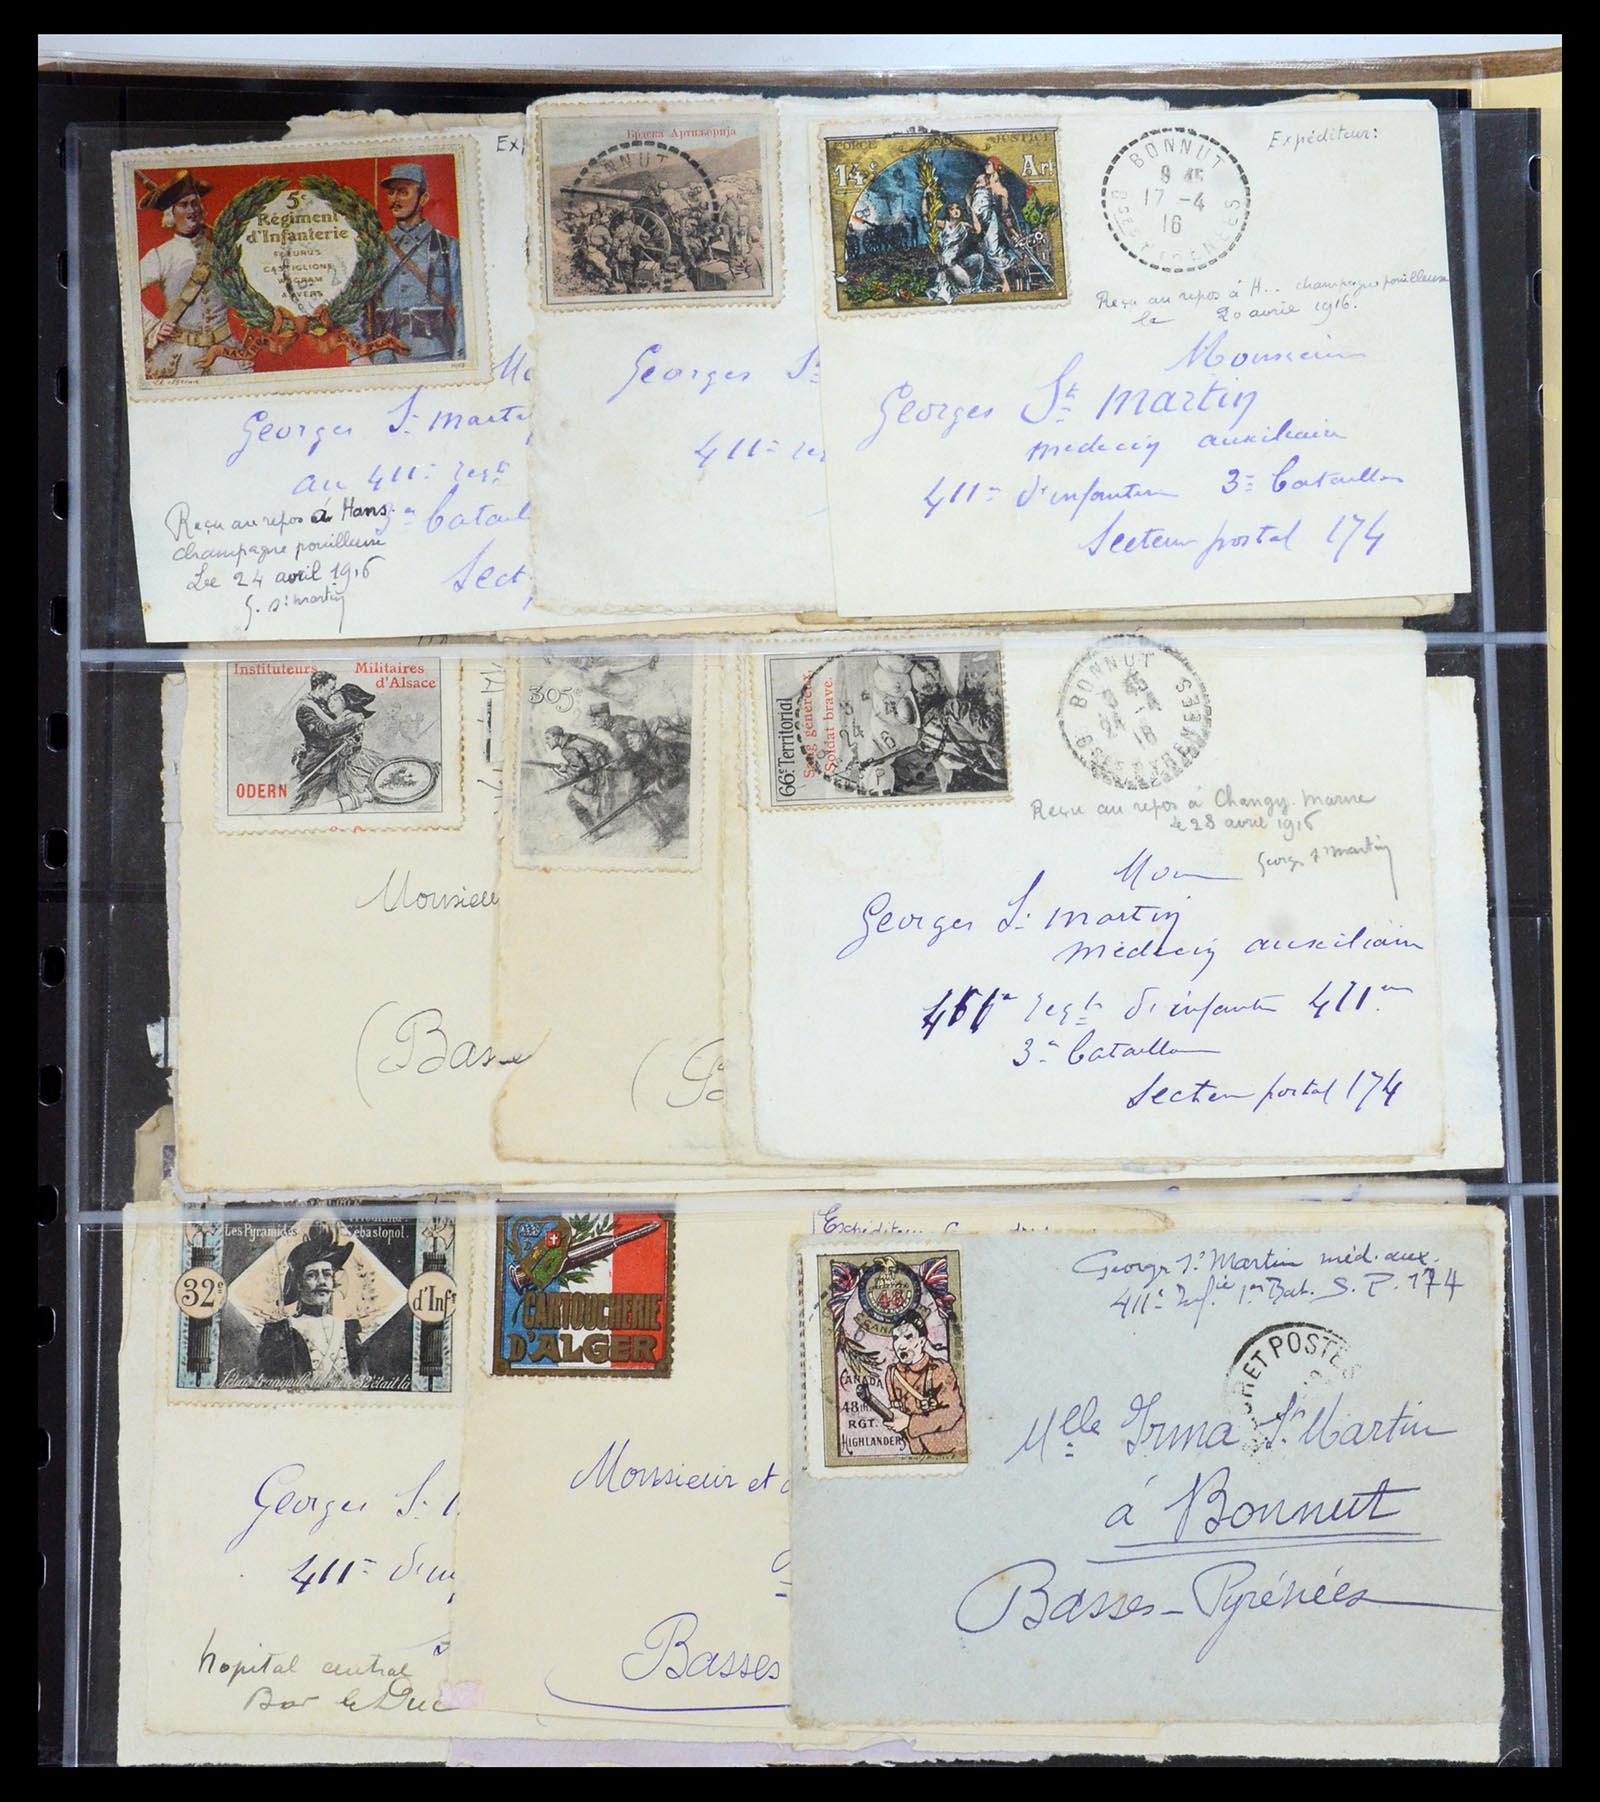 Exp
5e
Régiment
d'Infanterie
FLEURUS
CASTIGLIONE
WAGRAM
ANVERS
NAVARRE SANS PEUR
Georges St. Mart
au 411e regt
3e batail
Sect
Reçu au repos à Hans
champagne pouilleuse
Le 24 avril 1916
G. St Martin
Брдска Артиљерија
BONNUT
Georges St
411e reg
FORCE JUSTICE
14e Art
BONNUT
9 45
17 -4
16
Bses PYRENEES
Expéditeur:
Reçu au repos à H... champagne pouilleuse
le 20 avril 1916.
Monsieur
Georges St. Martin
médecin auxiliaire
411e d'infanterie 3e bataillon
Secteur postal 174
Instituteurs Militaires
d'Alsace
ODERN
Monsieu
(Basse
305e
66e Territorial
Sang généreux,
Soldat brave.
24
16
BONNUT
9 45
24 -4
16
Bses PYRENEES
Reçu au repos à Changy. Marne
le 28 avril 1916
Georges St Martin
Mon
Georges St. Martin
médecin auxiliaire
regt d'infanterie 411e
3e bataillon
Secteur postal 174
Les Pyramides
Sébastopol.
32e d'Inf
J'étais tranquille la brave 32e était là
Georges St.
411e d'in
hopital central
Bar le Duc
CARTOUCHERIE
D'ALGER
Monsieur et
Basses
Expéditeur
48
CANADA
48TH
RGT.
HIGHLANDERS
Georges St Martin méd. aux.
411e Infie 1er Bat. S. P. 174
TRESOR ET POSTES
Mlle Irma St. Martin
à Bonnut
Basses-Pyrénées